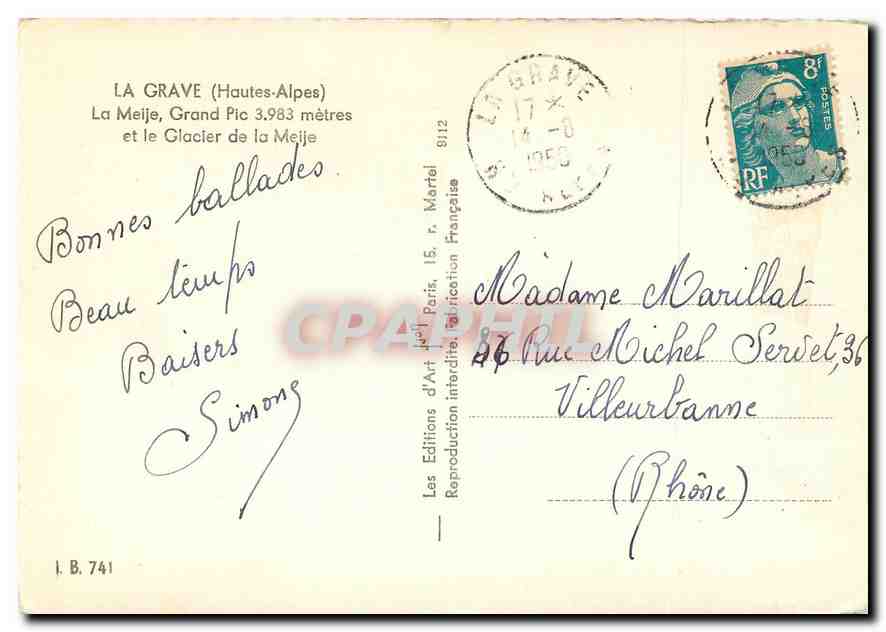 LA GRAVE (Hautes-Alpes)
La Meije, Grand Pic 3.983 mètres
et le Glacier de la Meije
Bonnes ballades
Beau temps
Baisers
Simone
I. B. 741
Les Editions d'Art Yvon Paris, 15, r. Martel
Reproduction interdite. Fabrication Française
8112
LA GRAVE
17 *
14 -8
1950
8F
POSTES
RF
Madame Marillat
36 Rue Michel Servet, 36
Villeurbanne
(Rhône)
CPAPHIL